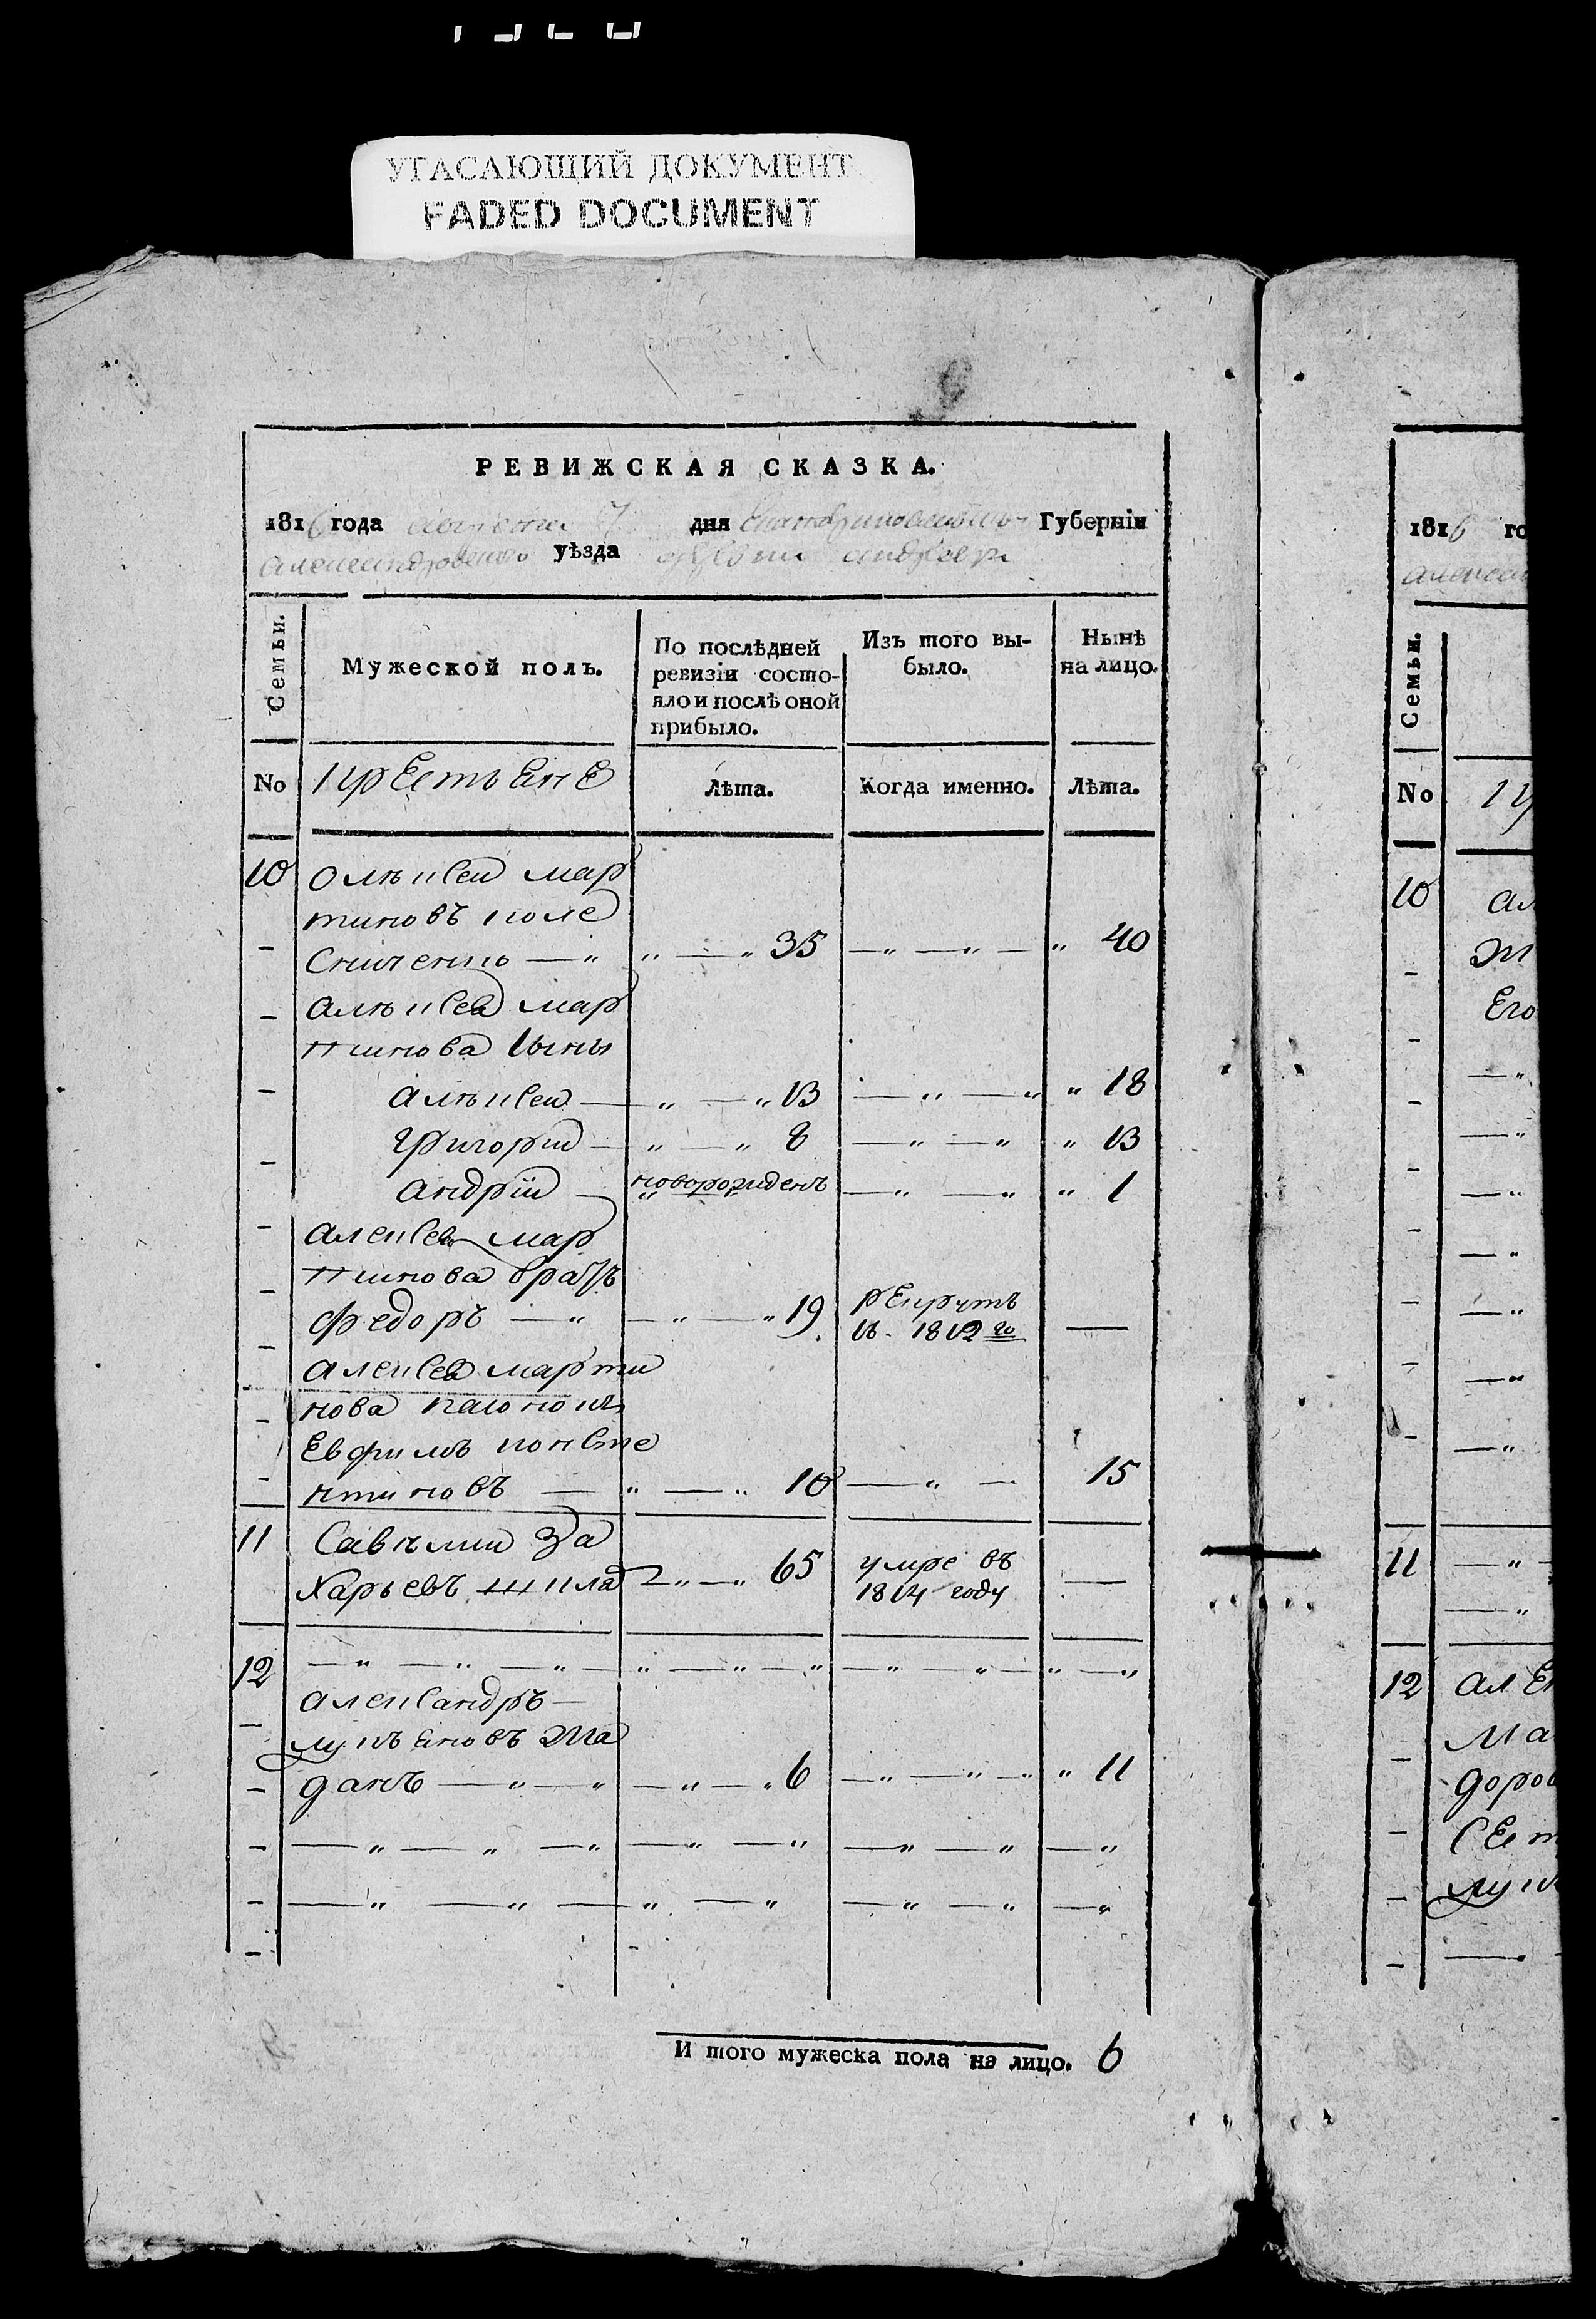 УГАСАЮЩИЙ ДОКУМЕНТ
FADED DOCUMENT
РЕВИЖСКАЯ СКАЗКА.
1816 года 7 дня Губернiи
уѣзда
Семьи.
Мужеской полъ.
По послѣдней ревизiи состо-
яло и послѣ оной
прибыло.
Изъ того вы-
было.
Нынѣ
на лицо.
No крестьяне Лѣта. Когда именно. Лѣта.
10 олѣксеи мар
тиновъ коле
сниченко — „ „ — „ 35 — „ — „ — „ 40
алѣксея мар
тинова сыны
алѣксеи — „ — „ 13 — „ — „ „ 18
григории — „ — „ 8 — „ — „ „ 13
андрiй — новорожденъ — „ — „ „ 1
алексея мар
тинова братъ
федоръ — „ — „ — „ 19 рекрутъ
въ 1812 го —
алексея марти
нова
Евфимъ конста
нтиновъ — „ — „ 10 — „ — 15
11 Савѣлии За
харьевъ шкла „ — „ 65 умре въ
1814 году —
12 — „ — „ — „ — „ — „ — „ — „ — „ — „ — „
александръ —
лукъяновъ Жа
данъ — „ — „ — „ — „ 6 — „ — „ — „ „ 11
— „ — „ — „ — „ — „ — „ — „ — „
— „ — „ — „ — „ — „ — „ — „
И того мужеска пола на лицо. 6
1816 го
Семьи.
No
10
Его
11
12 алек
Ма
доров
сест
лукъ